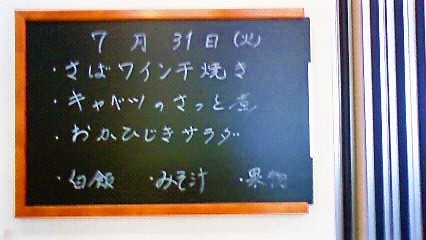 7月31日(火)
・さばワイン干焼き
・キャベツのさっと煮
・おかひじきサラダ
・白飯 ・みそ汁 ・果物